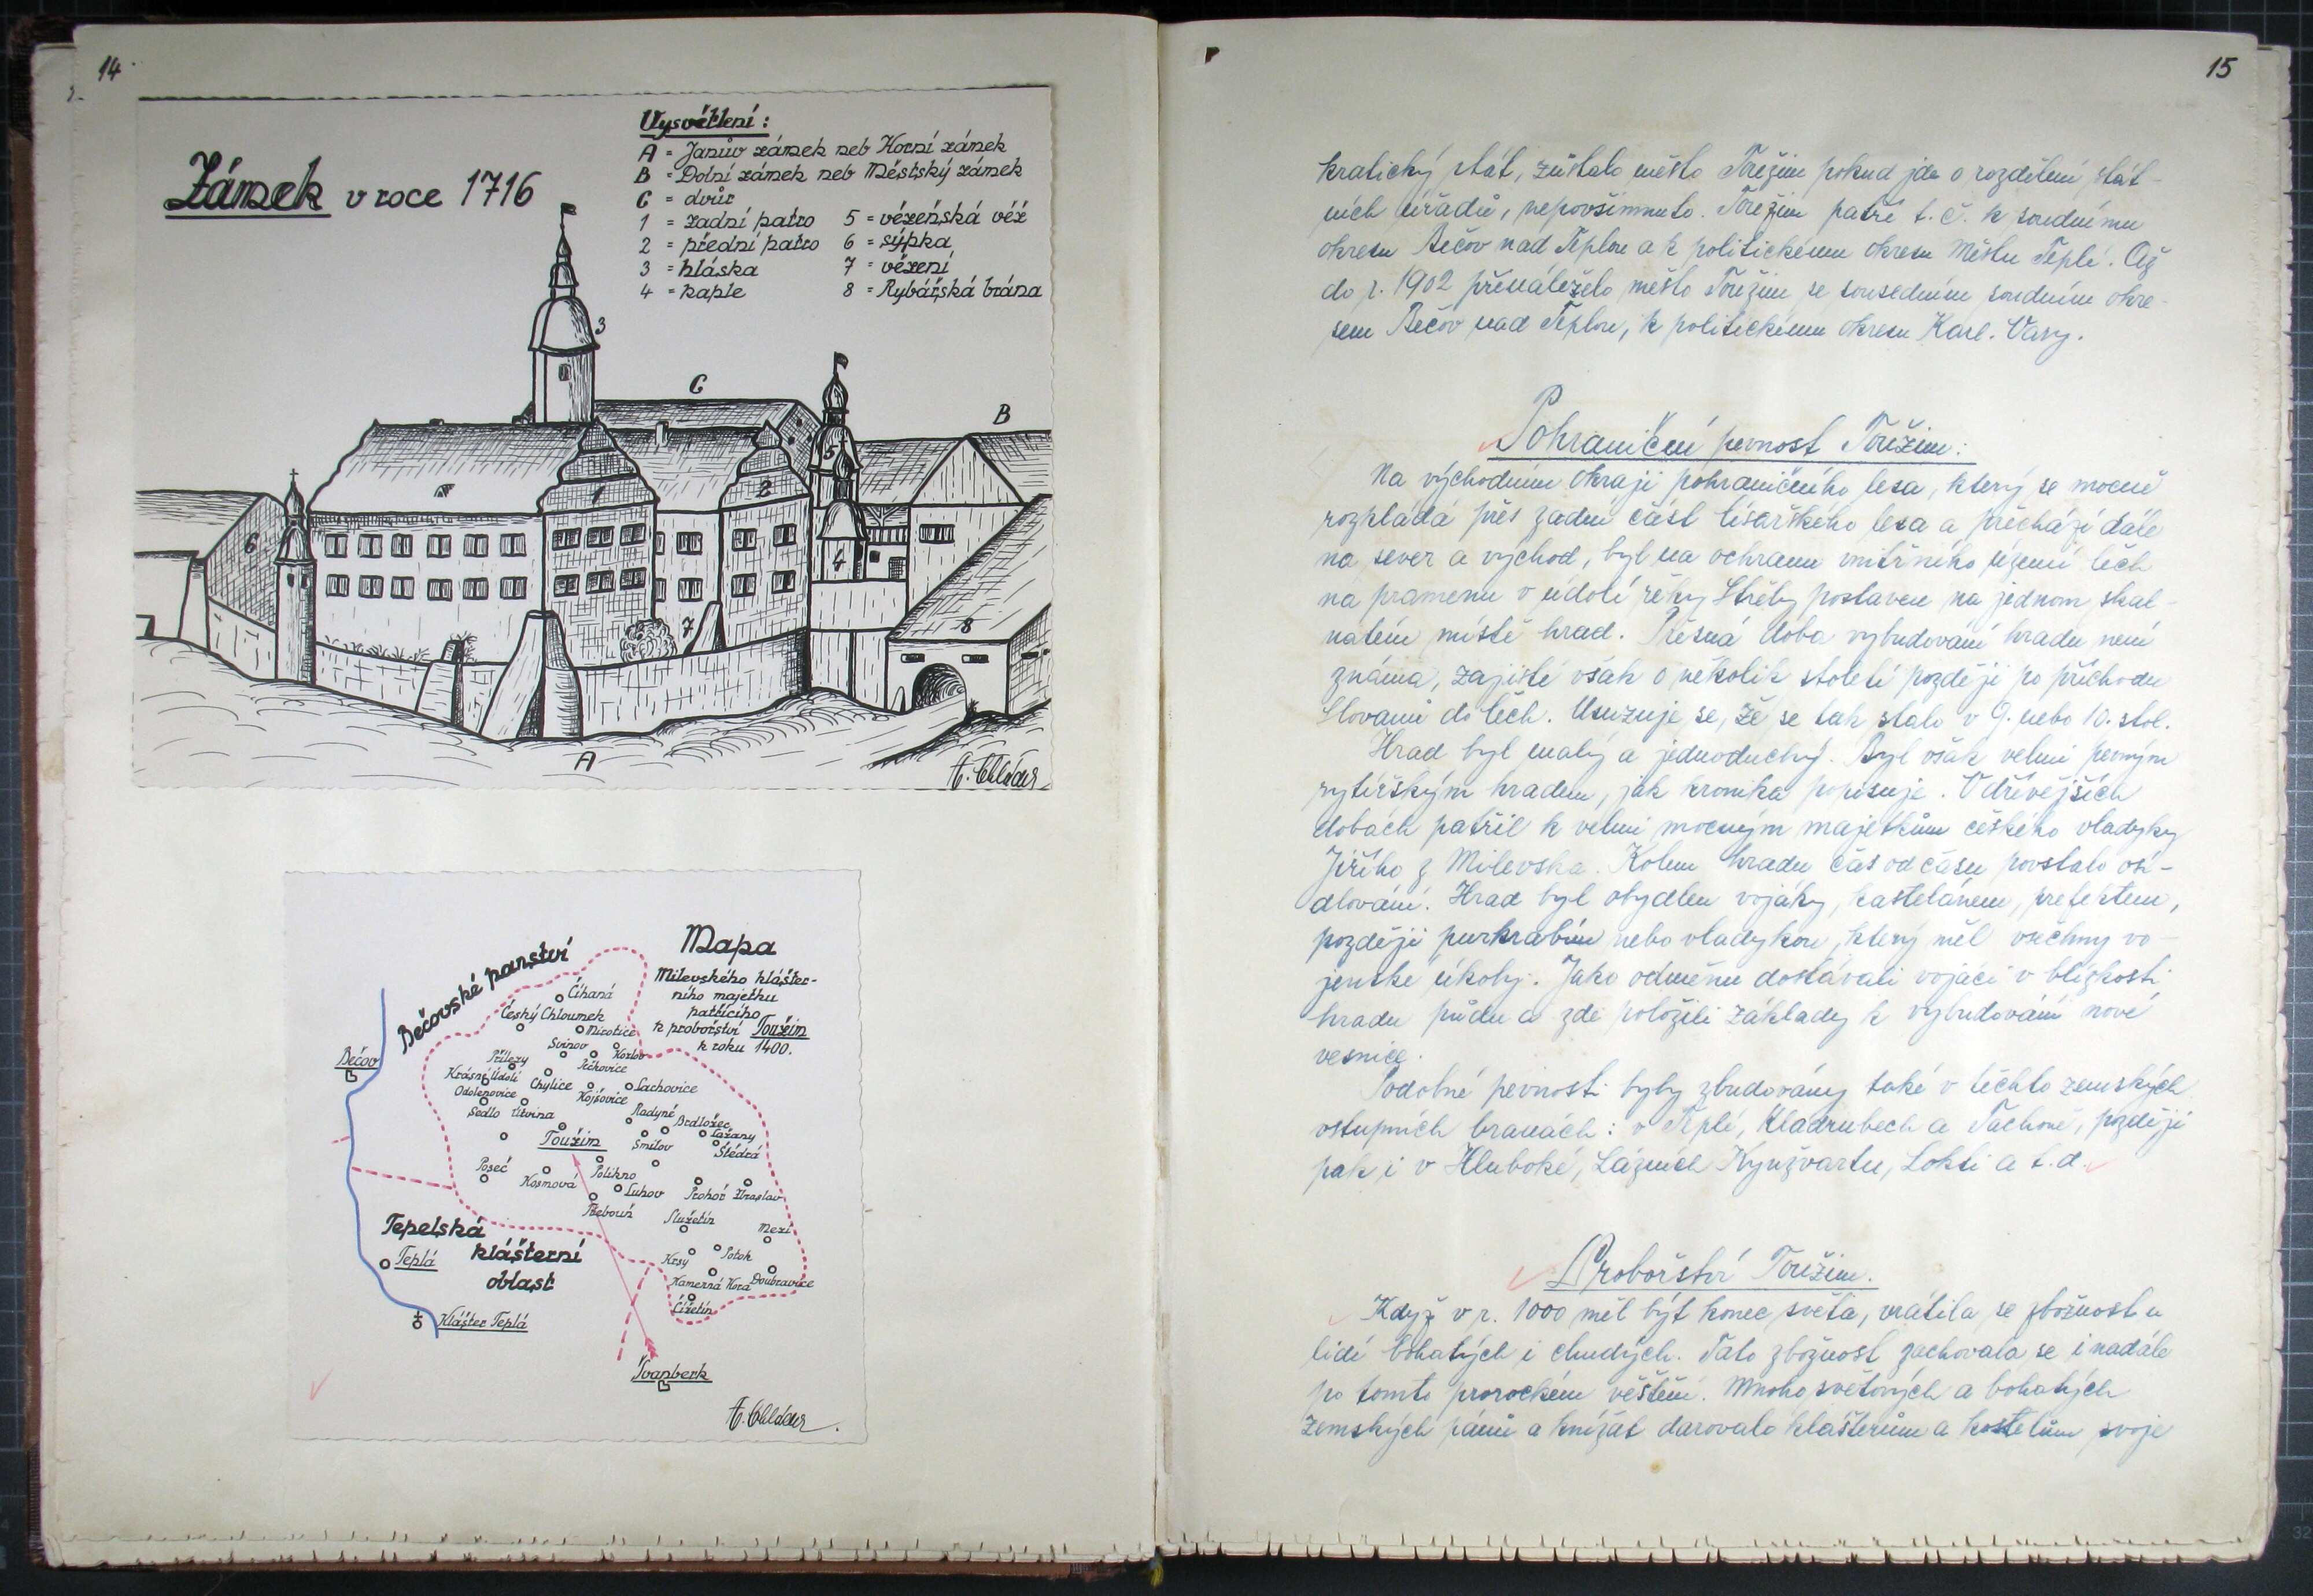 14
Zámek v roce 1716
Vysvětlení:
A = Janův zámek neb Horní zámek
B = Dolní zámek neb Městský zámek
C = dvůr
1 = zadní patro
2 = přední patro
3 = hláska
4 = kaple
5 = vězeňská věž
6 = sýpka
7 = vězení
8 = Rybářská brána
3
C
B
5
1
2
6
4
7
8
A
Mapa
Milevského klášter-
ního majetku
patřícího
k probořství Toužim
k roku 1400.
Bečovské panství
Bečov
Čihaná
Český Chloumek
Mirotice
Svinov
Kozlov
Přílezy
Péčkovice
Krásné Údolí
Chylice
Lachovice
Odolenovice
Kojšovice
Sedlo
Útvina
Radyně
Brdložec
Toužim
Smilov
Lažany
Štědrá
Poseč
Kosmová
Polikno
Luhov
Prohoř
Zbraslav
Třebouň
Služetín
Mezí
Tepelská
klášterní
oblast
Teplá
Krsy
Potok
Kamenná Hora
Doubravice
Čižetín
Klášter Teplá
Švanberk
15
kratický stát, zůstalo město Toužim pokud jde o rozdělení stát-
ních úřadů, nepovšimnuto. Toužim patří t. č. k soudnímu
okresu Bečov nad Teplou a k politickému okresu Městu Teplé. Až
do r. 1902 přináleželo město Toužim se sousedním soudním okre-
sem Bečov nad Teplou, k politickému okresu Karl. Vary.
Pohraniční pevnost Toužim:
Na východním okraji pohraničního lesa, který se mocně
rozkládá přes zadní část císařského lesa a přechází dále
na sever a východ, byl na ochranu vnitřního území Čech
na pramenu v údolí řeky Střely postaven na jednom skal-
natém místě hrad. Přesná doba vybudování hradu není
známa, zajisté však o několik století později po příchodu
Slovanů do Čech. Usuzuje se, že se tak stalo v 9. nebo 10. stol.
Hrad byl malý a jednoduchý. Byl však velmi pevným
rytířským hradem, jak kronika popisuje. V dřívějších
dobách patřil k velmi mocným majetkům českého vladyky
Jiřího z Milevska. Kolem hradu čas od času povstalo osí-
dlování. Hrad byl obydlen vojáky, kastelánem, prefektem,
později purkrabím nebo vladykou, který měl všechny vo-
jenské úkoly. Jako odměnu dostávali vojáci v blízkosti
hradu půdu a zde položili základy k vybudování nové
vesnice.
Podobné pevnosti byly zbudovány také v těchto zemských
vstupních branách: v Teplé, Kladrubech a Tachově, později
pak i v Hluboké, Lázních Kynžvartu, Lokti a t. d.
Probořství Toužim.
Když v r. 1000 měl být konec světa, vrátila se zbožnost u
lidí bohatých i chudých. Tato zbožnost zachovala se i nadále
po tomto prorockém věštění. Mnoho světových a bohatých
zemských pánů a knížat darovalo klášterům a kostelům svoje